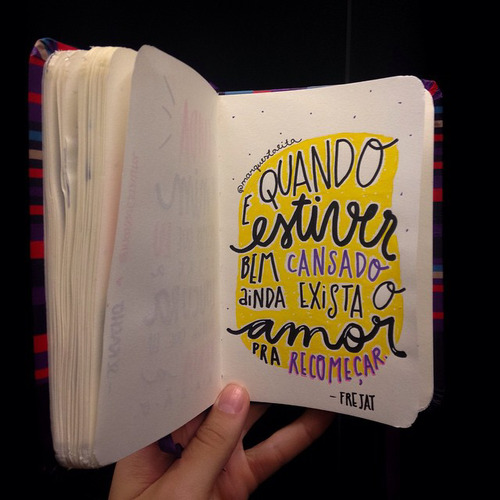 @marquestalita
E QUANDO
estiver
BEM CANSADO
aiNDA EXISTA O
amor
PRA RECOMEÇAR.
- FREJAT